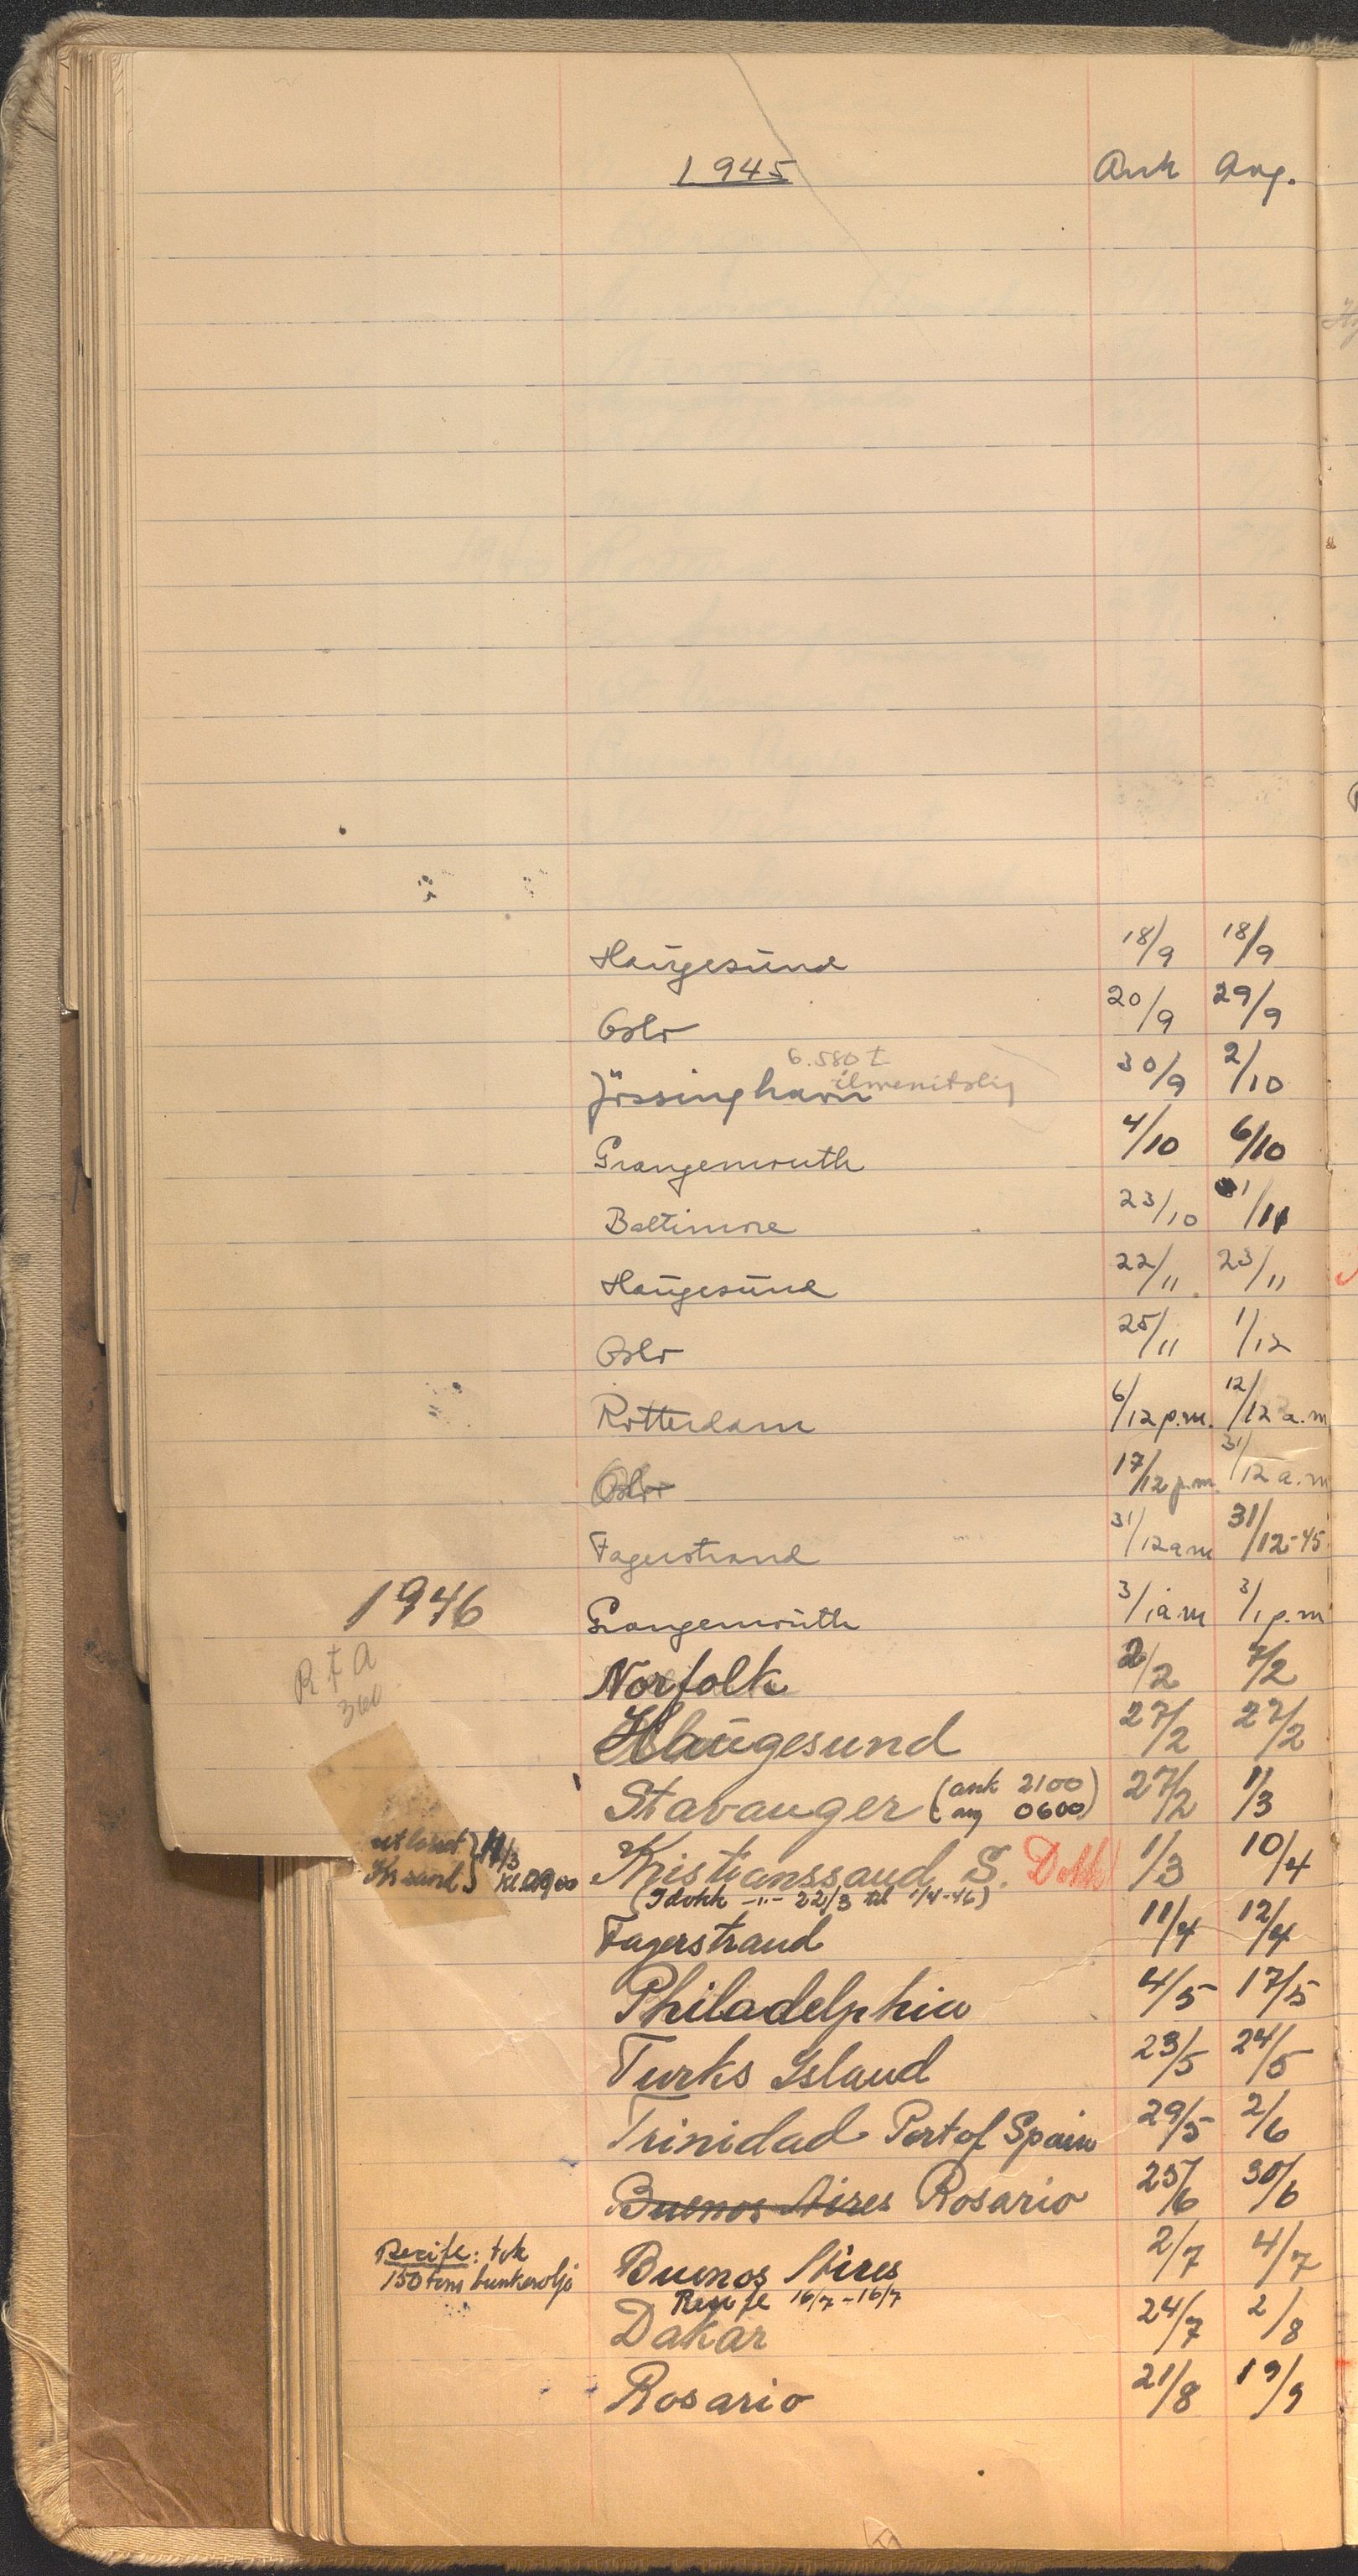 1945 Ank Avg.
Haugesund 18/9 18/9
Oslo 20/9 29/9
6.580 t
Jössinghavn ilmenitslig 30/9 2/10
Grangemouth 4/10 6/10
Baltimore 23/10 1/11
Haugesund 22/11 23/11
Oslo 25/11 1/12
Rotterdam 6/12 p.m. 12/12 a.m
Oslo 17/12 p.m. 31/12 a.m
Fagerstrand 31/12 am 31/12-45
1946 Grangemouth 3/1 a.m 3/1 p.m
R t A
360
Norfolk 2/2 7/2
Haugesund 27/2 27/2
Stavanger (ank 2100 27/2 1/3
avg 0600)
utlosset } 11/3
Kr sand } Kl. 2900
Kristianssand S. Dokk 1/3 10/4
(I dokk -"- 22/3 til 1/4-46)
Fagerstrand 11/4 12/4
Philadelphia 4/5 17/5
Turks Island 23/5 24/5
Trinidad Port of Spain 29/5 2/6
Buenos Aires Rosario 25/6 30/6
Recife: tok
150 tons bunkerolje
Buenos Aires 2/7 4/7
Recife 16/7 - 16/7
Dakar 24/7 2/8
Rosario 21/8 19/9